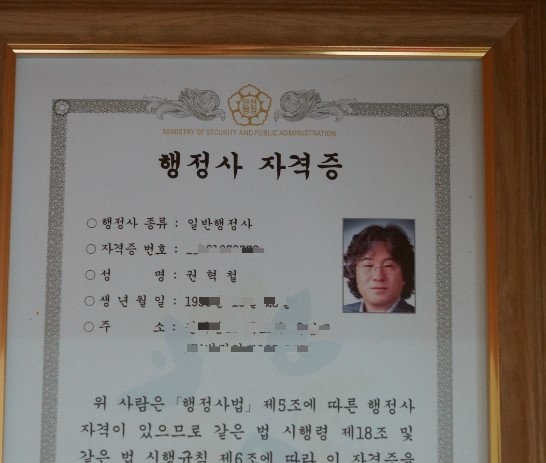 MINISTRY OF SECURITY AND PUBLIC ADMINISTRATION
행정사 자격증
○ 행정사 종류 : 일반행정사
○ 자격증 번호 :
○ 성 명 : 권 혁 철
○ 생 년 월 일 :
○ 주 소 :
위 사람은 「행정사법」 제5조에 따른 행정사
자격이 있으므로 같은 법 시행령 제18조 및
같은 법 시행규칙 제6조에 따라 이 자격증을